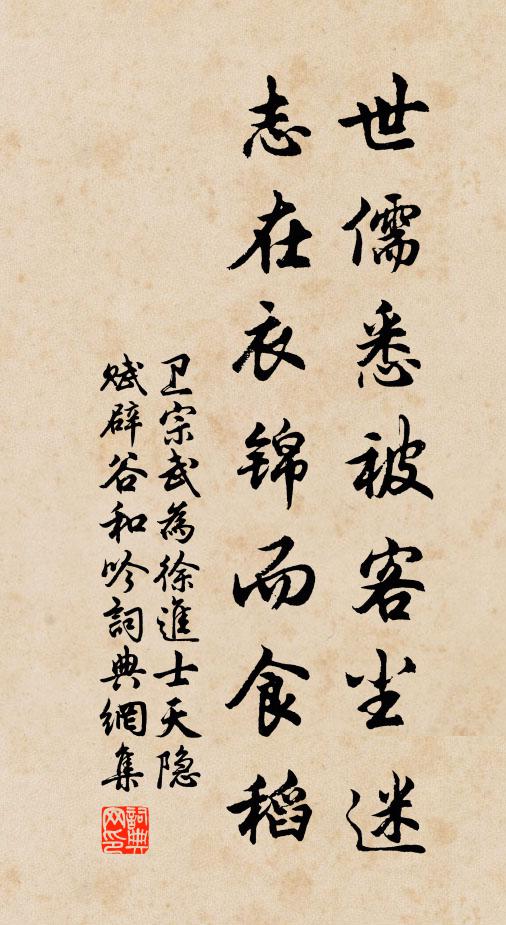 世儒悉被客尘迷
志在衣锦而食稻
卫宗武為徐進士天隐
赋辟谷和吟詞典網集
詞典网印